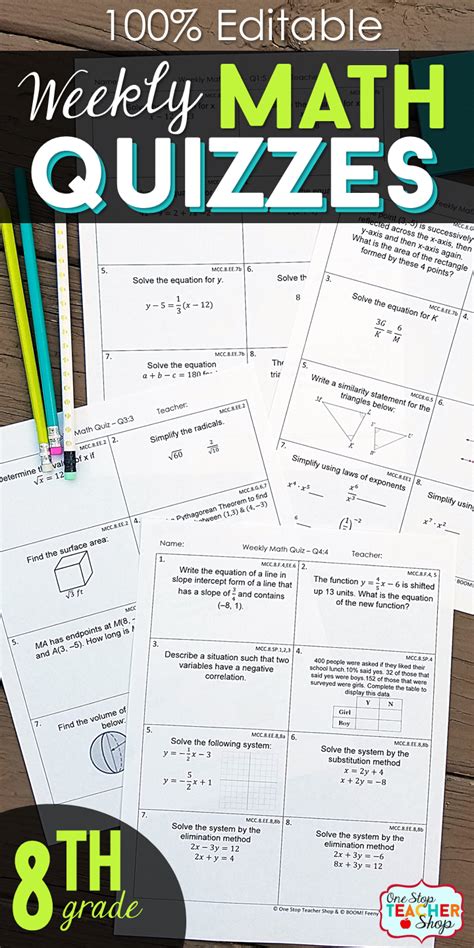 100% Editable
Weekly MATH
QUIZZES
Name:
Weekly Math
Q1:5
MCC.8.EE.7b
5.
Solve the equation for y.
y − 5 = 1/3 (x − 12)
6.
MCC.8.EE.7b
7.
Solve the equation
a + b − c = 180 for
8.
(3, -5) is successively
reflected across the x-axis, then
y-axis and then x-axis again.
What is the area of the rectangle
formed by these 4 points?
3.
Solve the equation for K
3G/K = 6/M
4.
MCC8.G.5
5.
Write a similarity statement for the
triangles below:
Simplify using laws of exponents
x⁴ · x³
x⁶/x³
Math Quiz – Q3:3
Teacher:
MCC.8.EE.2
Determine the value of x if
√x = 12
2.
MCC.8.EE.2
Simplify the radicals.
√60
2/√10
MCC.8.EE.2
Find the surface area:
√3 ft
MCC.8.G.6,7
Pythagorean Theorem to find
between (1,3) & (4,−3)
5.
MA has endpoints at M(8,
and A(3, −5). How long is M
7.
Find the volume of
below:
Name:
Weekly Math Quiz – Q4:4
Teacher:
1.
MCC.8.F.4,EE.6
Write the equation of a line in
slope intercept form of a line that
has a slope of 3/4 and contains
(−8, 1).
2.
MCC.8.F.4, 5
The function y = 4/5 x − 6 is shifted
up 13 units. What is the equation
of the new function?
3.
MCC.8.SP.1,2,3
Describe a situation such that two
variables have a negative
correlation.
4.
MCC.8.SP.4
400 people were asked if they liked their
school lunch.10% said yes. 32 of those that
said yes were boys.152 of those that were
surveyed were girls. Complete the table to
display this data.
Y N
Girl
Boy
5.
MCC.8.EE.8,8a
Solve the following system:
y = −1/2 x − 3
y = −5/2 x + 1
6.
MCC.8.EE.8,8b
Solve the system by the
substitution method
x = 2y + 4
x + 2y = −8
7.
MCC.8.EE.8,8b
Solve the system by the
elimination method
2x − 3y = 12
2x + y = 4
8.
MCC.8.EE.8,8b
Solve the system by the
elimination method
2x + 3y = 12
x + 3y = 6
© One Stop Teacher Shop & © BOOM! Feeny
8TH
grade
One Stop
TEACHER
Shop